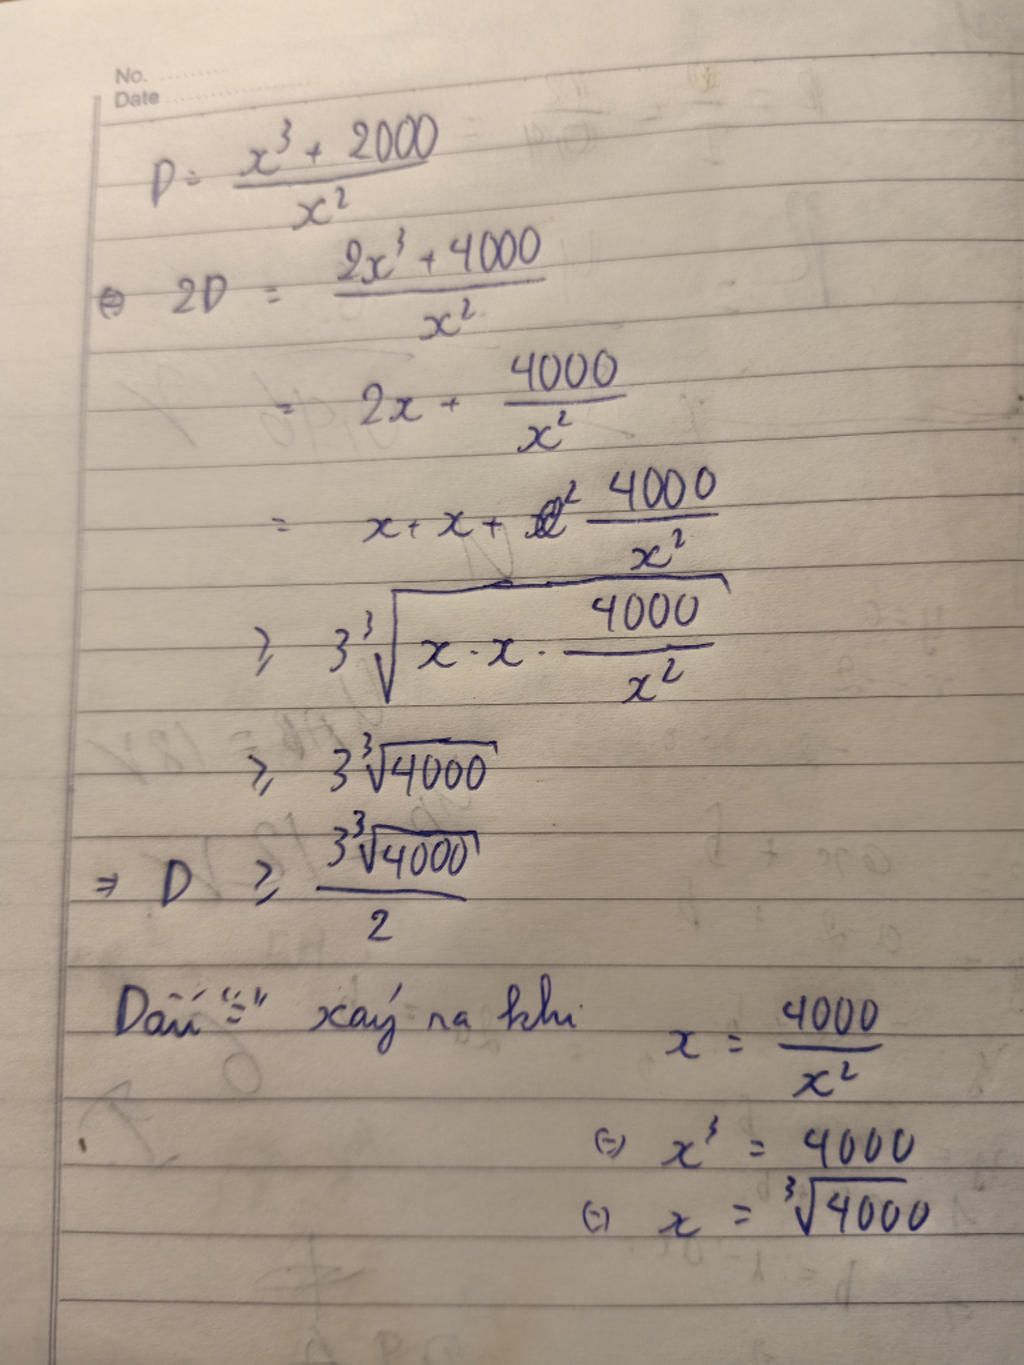 No.
Date
D = (x³ + 2000)/x²
⇔ 2D = (2x³ + 4000)/x²
= 2x + 4000/x²
= x + x + 4000/x²
≥ 3∛(x · x · 4000/x²)
≥ 3∛4000
⇒ D ≥ 3∛4000/2
Dấu "=" xảy ra khi x = 4000/x²
⇔ x³ = 4000
⇔ x = ∛4000